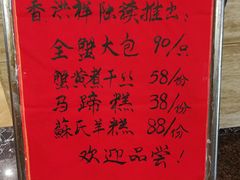 香洪祥陆续推出：
全蟹大包 90/只
蟹黄煮干丝 58/份
马蹄糕 38/份
蘇氏羊糕 88/份
欢迎品尝！